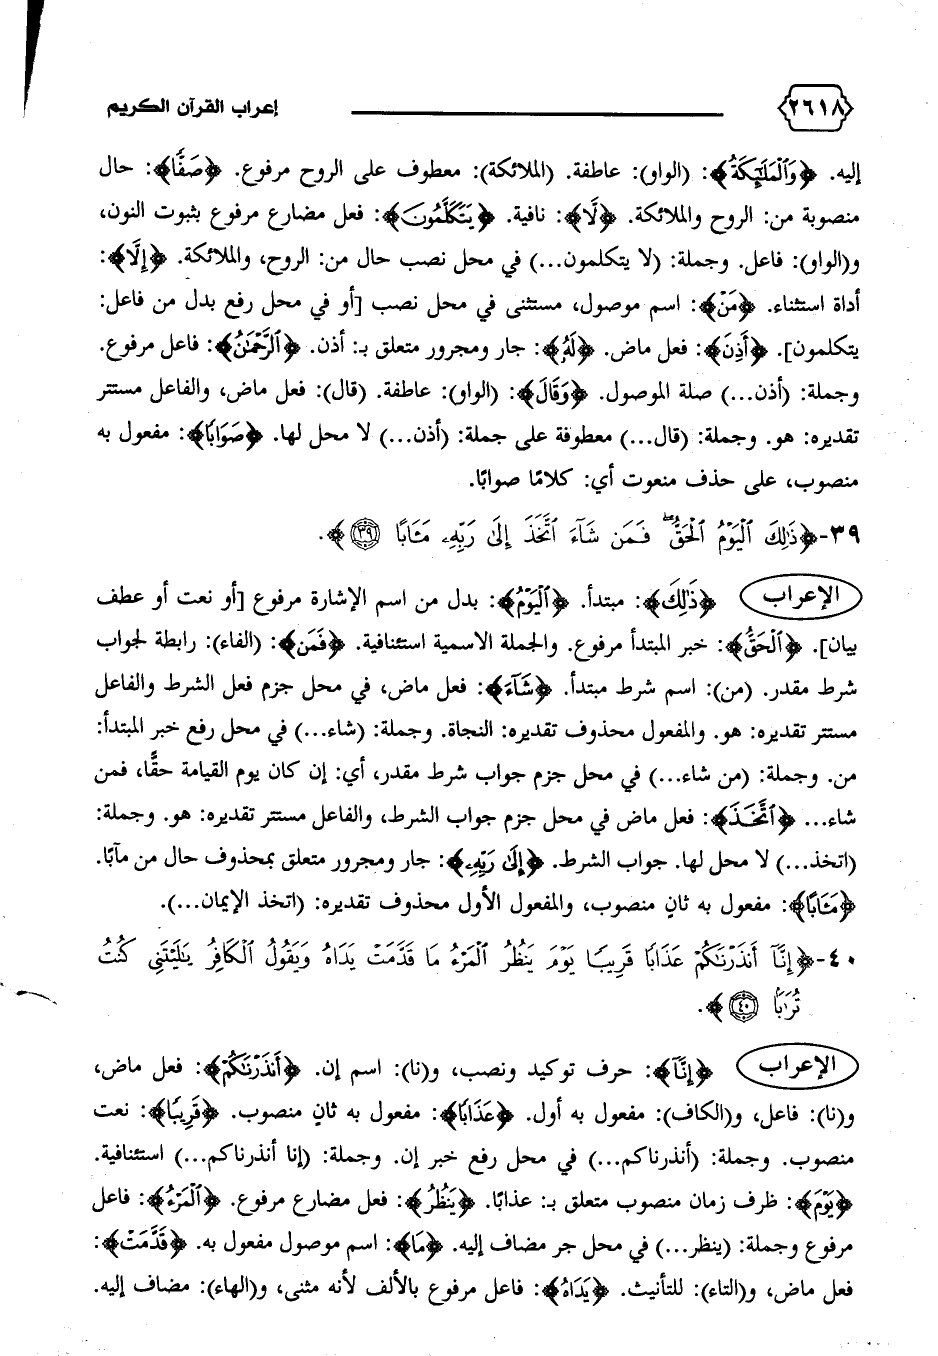 ٢٦١٨ إعراب القرآن الكريم
إليه. ﴿وَٱلْمَلَٰٓئِكَةُ﴾: (الواو): عاطفة. (الملائكة): معطوف على الروح مرفوع. ﴿صَفًّا﴾: حال
منصوبة من: الروح والملائكة. ﴿لَّا﴾: نافية. ﴿يَتَكَلَّمُونَ﴾: فعل مضارع مرفوع بثبوت النون،
و(الواو): فاعل. وجملة: (لا يتكلمون...) في محل نصب حال من: الروح، والملائكة. ﴿إِلَّا﴾:
أداة استثناء. ﴿مَنْ﴾: اسم موصول، مستثنى في محل نصب [أو في محل رفع بدل من فاعل:
يتكلمون]. ﴿أَذِنَ﴾: فعل ماض. ﴿لَهُ﴾: جار ومجرور متعلق بـ: أذن. ﴿ٱلرَّحْمَٰنُ﴾: فاعل مرفوع.
وجملة: (أذن...) صلة الموصول. ﴿وَقَالَ﴾: (الواو): عاطفة. (قال): فعل ماض، والفاعل مستتر
تقديره: هو. وجملة: (قال...) معطوفة على جملة: (أذن...) لا محل لها. ﴿صَوَابًا﴾: مفعول به
منصوب، على حذف منعوت أي: كلامًا صوابًا.
٣٩-﴿ذَٰلِكَ ٱلْيَوْمُ ٱلْحَقُّ ۖ فَمَن شَآءَ ٱتَّخَذَ إِلَىٰ رَبِّهِۦ مَـَٔابًا ٣٩﴾.
الإعراب ﴿ذَٰلِكَ﴾: مبتدأ. ﴿ٱلْيَوْمُ﴾: بدل من اسم الإشارة مرفوع [أو نعت أو عطف
بيان]. ﴿ٱلْحَقُّ﴾: خبر المبتدأ مرفوع. والجملة الاسمية استئنافية. ﴿فَمَن﴾: (الفاء): رابطة لجواب
شرط مقدر. (من): اسم شرط مبتدأ. ﴿شَآءَ﴾: فعل ماض، في محل جزم فعل الشرط والفاعل
مستتر تقديره: هو. والمفعول محذوف تقديره: النجاة. وجملة: (شاء...) في محل رفع خبر المبتدأ:
من. وجملة: (من شاء...) في محل جزم جواب شرط مقدر، أي: إن كان يوم القيامة حقًّا، فمن
شاء... ﴿ٱتَّخَذَ﴾: فعل ماض في محل جزم جواب الشرط، والفاعل مستتر تقديره: هو. وجملة:
(اتخذ...) لا محل لها. جواب الشرط. ﴿إِلَىٰ رَبِّهِۦ﴾: جار ومجرور متعلق بمحذوف حال من مآبًا.
﴿مَـَٔابًا﴾: مفعول به ثانٍ منصوب، والمفعول الأول محذوف تقديره: (اتخذ الإيمان...).
٤٠-﴿إِنَّآ أَنذَرْنَٰكُمْ عَذَابًا قَرِيبًا يَوْمَ يَنظُرُ ٱلْمَرْءُ مَا قَدَّمَتْ يَدَاهُ وَيَقُولُ ٱلْكَافِرُ يَٰلَيْتَنِى كُنتُ
تُرَٰبًۢا ٤٠﴾.
الإعراب ﴿إِنَّآ﴾: حرف توكيد ونصب، و(نا): اسم إن. ﴿أَنذَرْنَٰكُمْ﴾: فعل ماض،
و(نا): فاعل، و(الكاف): مفعول به أول. ﴿عَذَابًا﴾: مفعول به ثانٍ منصوب. ﴿قَرِيبًا﴾: نعت
منصوب. وجملة: (أنذرناكم...) في محل رفع خبر إن. وجملة: (إنا أنذرناكم...) استئنافية.
﴿يَوْمَ﴾: ظرف زمان منصوب متعلق بـ: عذابًا. ﴿يَنظُرُ﴾: فعل مضارع مرفوع. ﴿ٱلْمَرْءُ﴾: فاعل
مرفوع وجملة: (ينظر...) في محل جر مضاف إليه. ﴿مَا﴾: اسم موصول مفعول به. ﴿قَدَّمَتْ﴾:
فعل ماض، و(التاء): للتأنيث. ﴿يَدَاهُ﴾: فاعل مرفوع بالألف لأنه مثنى، و(الهاء): مضاف إليه.